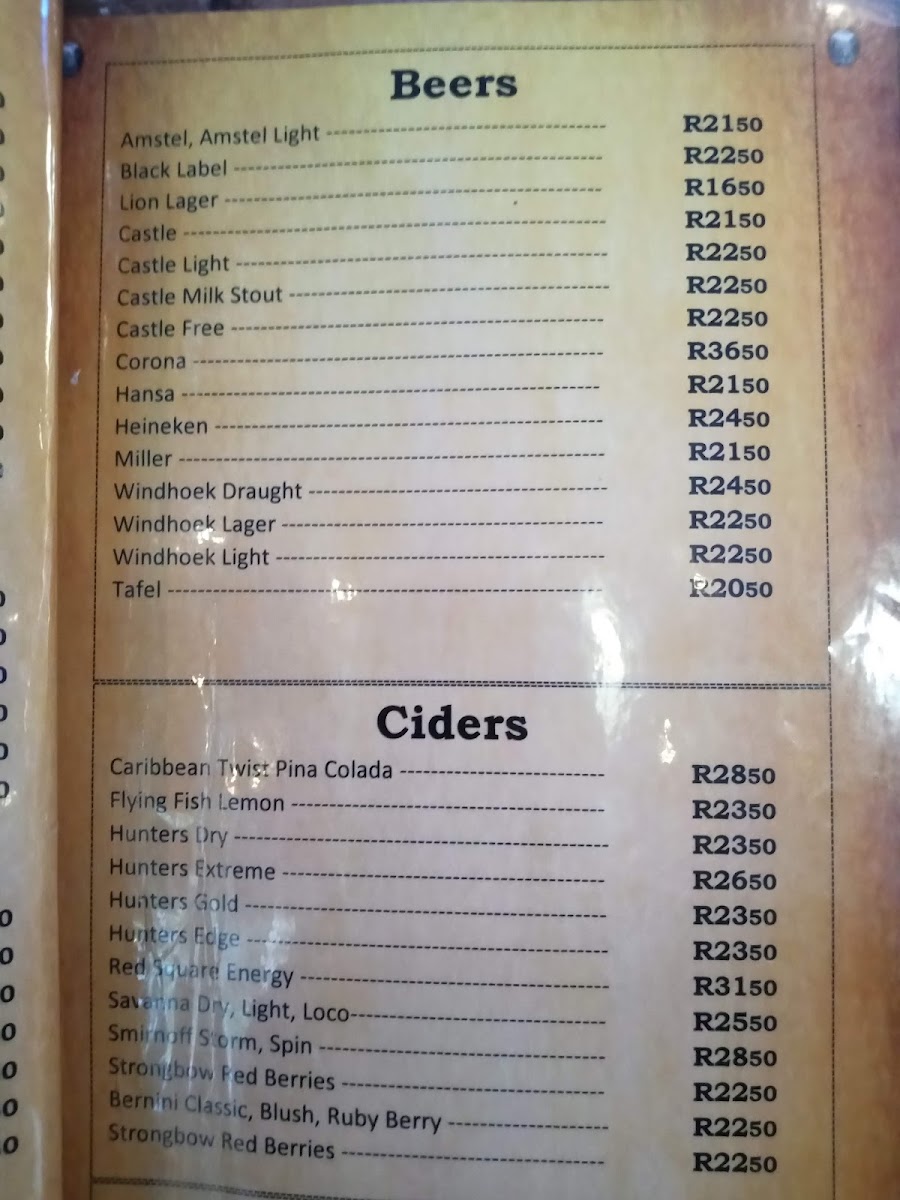 Beers
Amstel, Amstel Light ------------------------------ R2150
Black Label ------------------------------ R2250
Lion Lager ------------------------------ R1650
Castle ------------------------------ R2150
Castle Light ------------------------------ R2250
Castle Milk Stout ------------------------------ R2250
Castle Free ------------------------------ R2250
Corona ------------------------------ R3650
Hansa ------------------------------ R2150
Heineken ------------------------------ R2450
Miller ------------------------------ R2150
Windhoek Draught ------------------------------ R2450
Windhoek Lager ------------------------------ R2250
Windhoek Light ------------------------------ R2250
Tafel ------------------------------ R2050
Ciders
Caribbean Twist Pina Colada ------------------------------ R2850
Flying Fish Lemon ------------------------------ R2350
Hunters Dry ------------------------------ R2350
Hunters Extreme ------------------------------ R2650
Hunters Gold ------------------------------ R2350
Hunters Edge ------------------------------ R2350
Red Square Energy ------------------------------ R3150
Savanna Dry, Light, Loco------------------------------ R2550
Smirnoff Storm, Spin ------------------------------ R2850
Strongbow Red Berries ------------------------------ R2250
Bernini Classic, Blush, Ruby Berry ------------------------------ R2250
Strongbow Red Berries ------------------------------ R2250